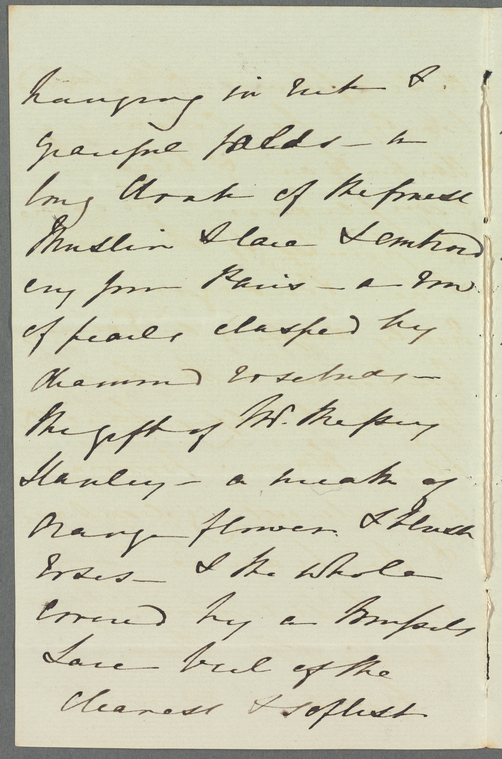 hanging in rich &
graceful folds – a
long cloak of the finest
Muslin & lace & embroid
ery from Paris – a row
of pearls clasped by
diamond rosebuds –
the gift of
Stanley – a wreath of
orange flower & blush
roses – & the whole
covered by a Brussels
Lace veil of the
clearest & softest